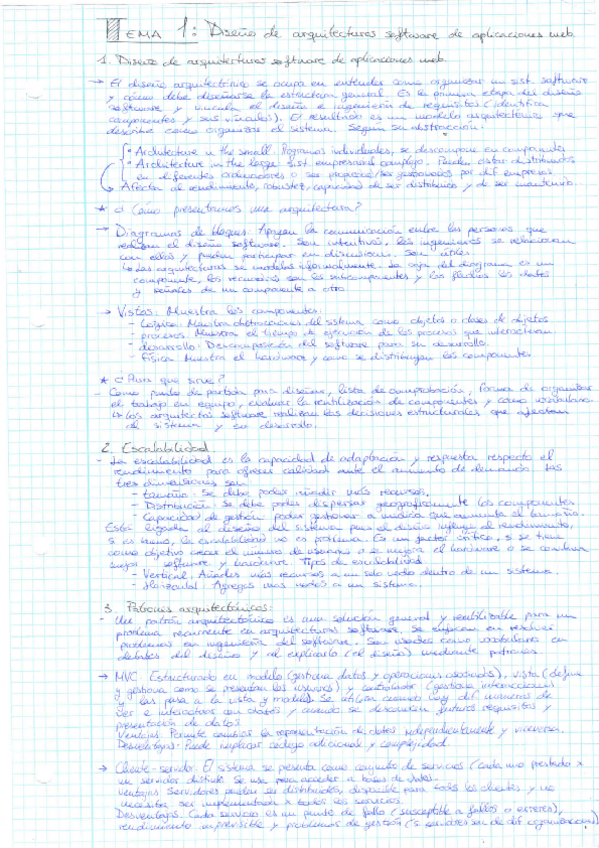 TEMA 1: Diseño de arquitecturas software de aplicaciones web.
1. Diseño de arquitecturas software de aplicaciones web.
→ El diseño arquitectónico se ocupa en entender como organizar un sist. software
y cómo debe diseñarse la estructura general. Es la primera etapa del diseño
software y vincula el diseño e ingeniería de requisitos (identifica
componentes y sus vínculos). El resultado es un modelo arquitectónico que
describe como organizar el sistema. Según su abstracción:
· Architecture in the small: Programas individuales, se descompone en componentes
· Architecture in the large: Sist. empresarial complejo. Pueden estar distribuidos
en diferentes ordenadores o ser propiedad/ser gestionados por dif. empresas.
Afectan al rendimiento, robustez, capacidad de ser distribuido y de ser mantenido.
* ¿Cómo presentamos una arquitectura?
→ Diagramas de bloques: Apoyan la comunicación entre las personas que
realizan el diseño software. Son intuitivos, los ingenieros se relacionan
con ellos y pueden participar en discusiones. Son útiles.
↳ Las arquitecturas se modelan informalmente. La caja del diagrama es un
componente, los recuadros son los subcomponentes y las flechas los datos
y señales de un componente a otro
→ Vistas: Muestra los componentes:
- Lógica: Muestra abstracciones del sistema como objetos o clases de objetos
- procesos: Muestra el tiempo de ejecución de los procesos que interactúan
- desarrollo: Descomposición del software para su desarrollo.
- Física: Muestra el hardware y como se distribuyen los componentes.
* ¿Para que sirve?
- Como punto de partida para diseñar, lista de comprobación, forma de organizar
el trabajo en equipo, evaluar la reutilización de componentes y como vocabulario.
↳ Los arquitectos software realizan las decisiones estructurales que afectan
al sistema y su desarrollo.
2. Escalabilidad
- La escalabilidad es la capacidad de adaptación y respuesta respecto el
rendimiento para ofrecer calidad ante el aumento de demanda. Las
tres dimensiones son:
- tamaño: Se debe poder añadir más recursos.
- Distribución: Se debe poder dispersar geográficamente los componentes.
- Capacidad de gestión: poder gestionar a medida que aumenta el tamaño.
Está ligada al diseño del sistema pues el diseño influye al rendimiento,
si es bueno, la escalabilidad no es problema. Es un factor crítico, si se tiene
como objetivo crecer el número de usuarios o se mejora el hardware o se combina
mejor software y hardware. Tipos de escalabilidad:
- Vertical: Añades más recursos a un solo nodo dentro de un sistema.
- Horizontal: Agregas más nodos a un sistema.
3. Patrones arquitectónicos:
- Un patrón arquitectónico es una solución general y reutilizable para un
problema recurrente en arquitecturas software, se enfocan en resolver
problemas en ingeniería del software. Son usados como vocabulario en
debates del diseño y al explicarlo (el diseño) mediante patrones.
→ MVC: Estructurado en modelo (gestiona datos y operaciones asociadas), vista (define
y gestiona como se presentan los usuarios) y controlador (gestiona interacciones
y las pasa a la vista y modelo). Se utiliza cuando hay dif. maneras de
ver e interactuar con datos y cuando se desconocen futuros requisitos y
presentación de datos.
Ventajas: Permite cambiar la representación de datos independientemente y viceversa.
Desventajas: Puede implicar código adicional y complejidad.
→ Cliente-servidor: El sistema se presenta como conjunto de servicios (cada uno prestado x
un servidor distinto. Se usa para acceder a bases de datos.
Ventajas: Servidores pueden ser distribuidos, disponible para todos los clientes y no
necesita ser implementada x todos los servicios.
Desventajas: Cada servicio es un punto de fallo (susceptible a fallos o errores),
rendimiento imprevisible y problemas de gestión (si servidores son de dif. organizaciones)